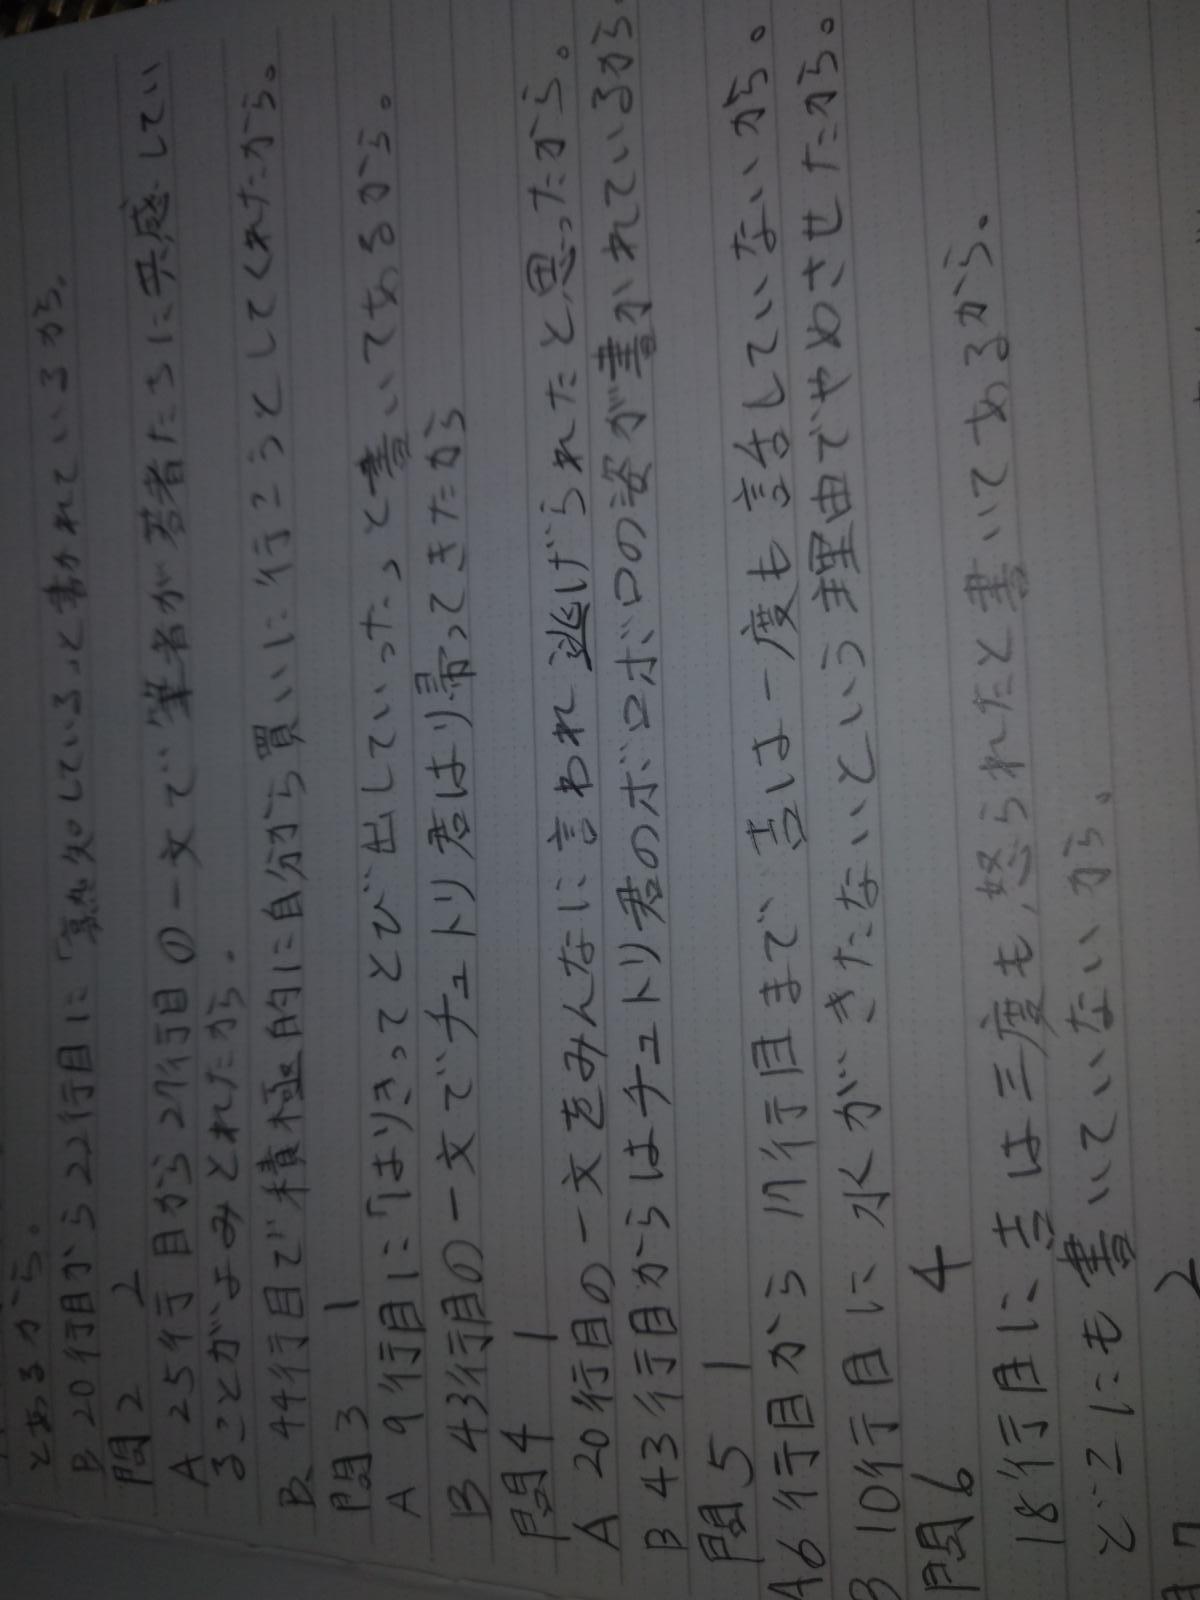 とあるから。
B 20行目から22行目に「熟知している」と書かれているから。
問2 2
A 25行目から27行目の一文で筆者が若者たちに共感してい
ることがよみとれたから。
B 44行目で積極的に自分から買いに行こうとしてくれたから。
問3 1
A 9行目に「はりきってとび出していった」と書いてあるから。
B 43行目の一文でチュトリ君はり帰ってきたから
問4 1
A 20行目の一文をみんなに言われ逃げられたと思ったから。
B 43行目からはチュトリ君のボロボロの姿が書かれているから
問5 1
A 6行目から17行目まで 吉は一度も言していないから。
B 10行目に水がきたないという理由でやめさせたから。
問6 4
18行目に吉は三度も怒られたと書いてあるから。
どこにも書いていないから。
問7 2